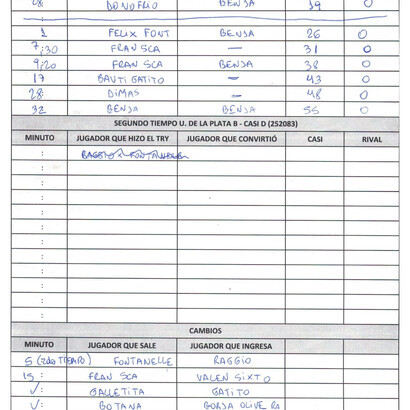 08 DONOFRIO BENJA 19 0
1 FELIX FONT BENJA 26 0
7:30 FRAN SCA — 31 0
9:20 FRAN SCA BENJA 38 0
17 BAUTI GATITO — 43 0
28: DIMAS — 48 0
32 BENJA BENJA 55 0
SEGUNDO TIEMPO U. DE LA PLATA B - CASI D (252083)
MINUTO JUGADOR QUE HIZO EL TRY JUGADOR QUE CONVIRTIÓ CASI RIVAL
CAMBIOS
MINUTO JUGADOR QUE SALE JUGADOR QUE INGRESA
5 (2do TIEMPO) FONTANELLE RAGGIO
15: FRAN SCA VALEN SIXTO
✓: GALLETITA GATITO
✓: BOTANA